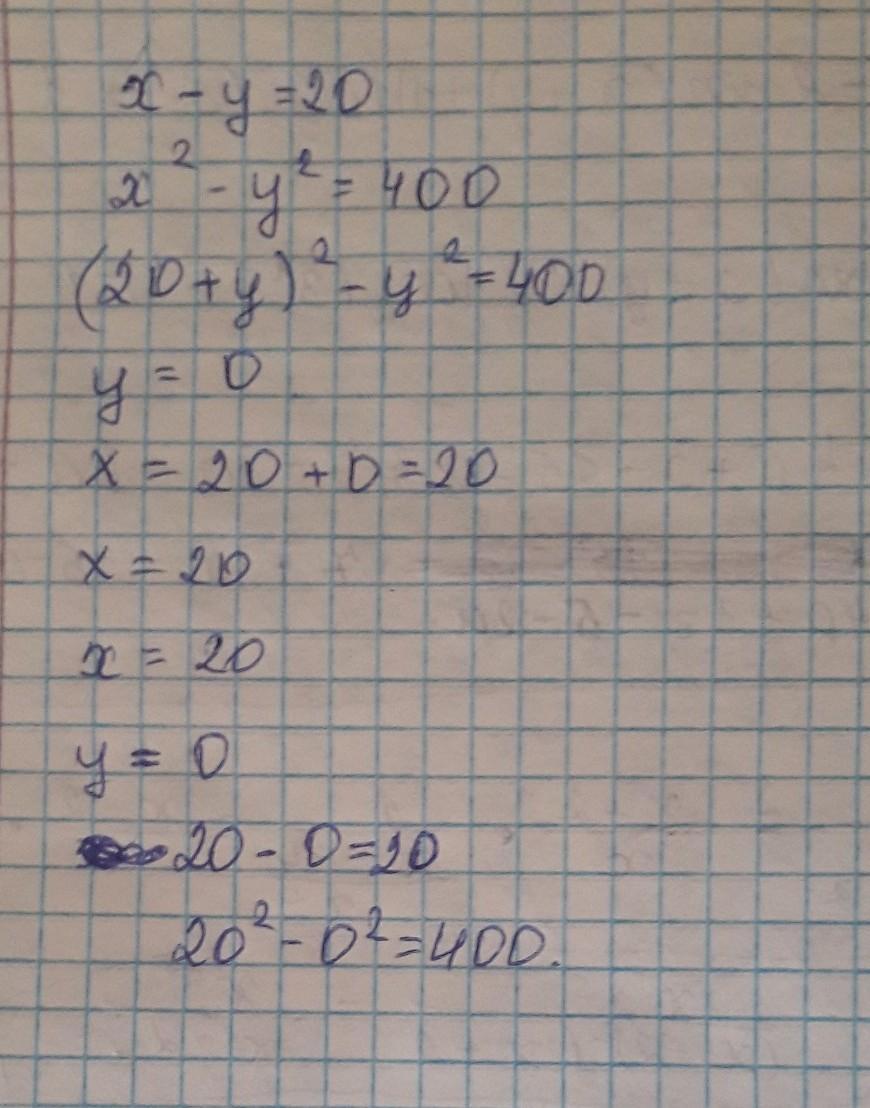 x - y = 20
x² - y² = 400
(20 + y)² - y² = 400
y = 0
x = 20 + 0 = 20
x = 20
x = 20
y = 0
20 - 0 = 20
20² - 0² = 400.